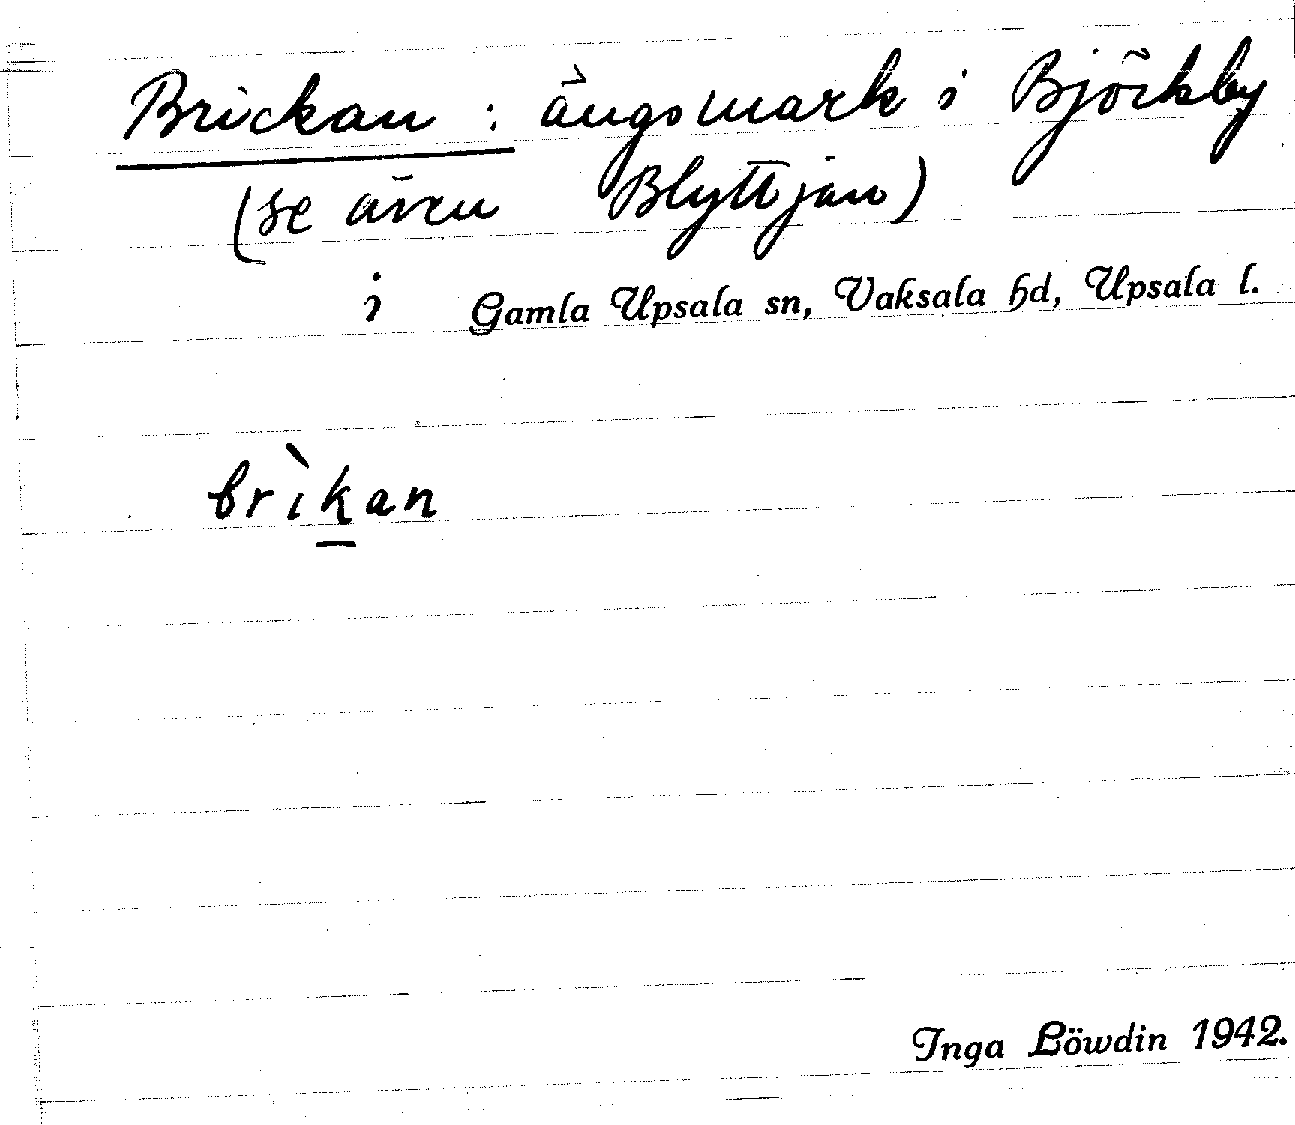 Brickan : ängsmark i Björkby
(se även Blyttjan)
i Gamla Upsala sn, Vaksala hd, Upsala l.
brìkan
Inga Löwdin 1942.